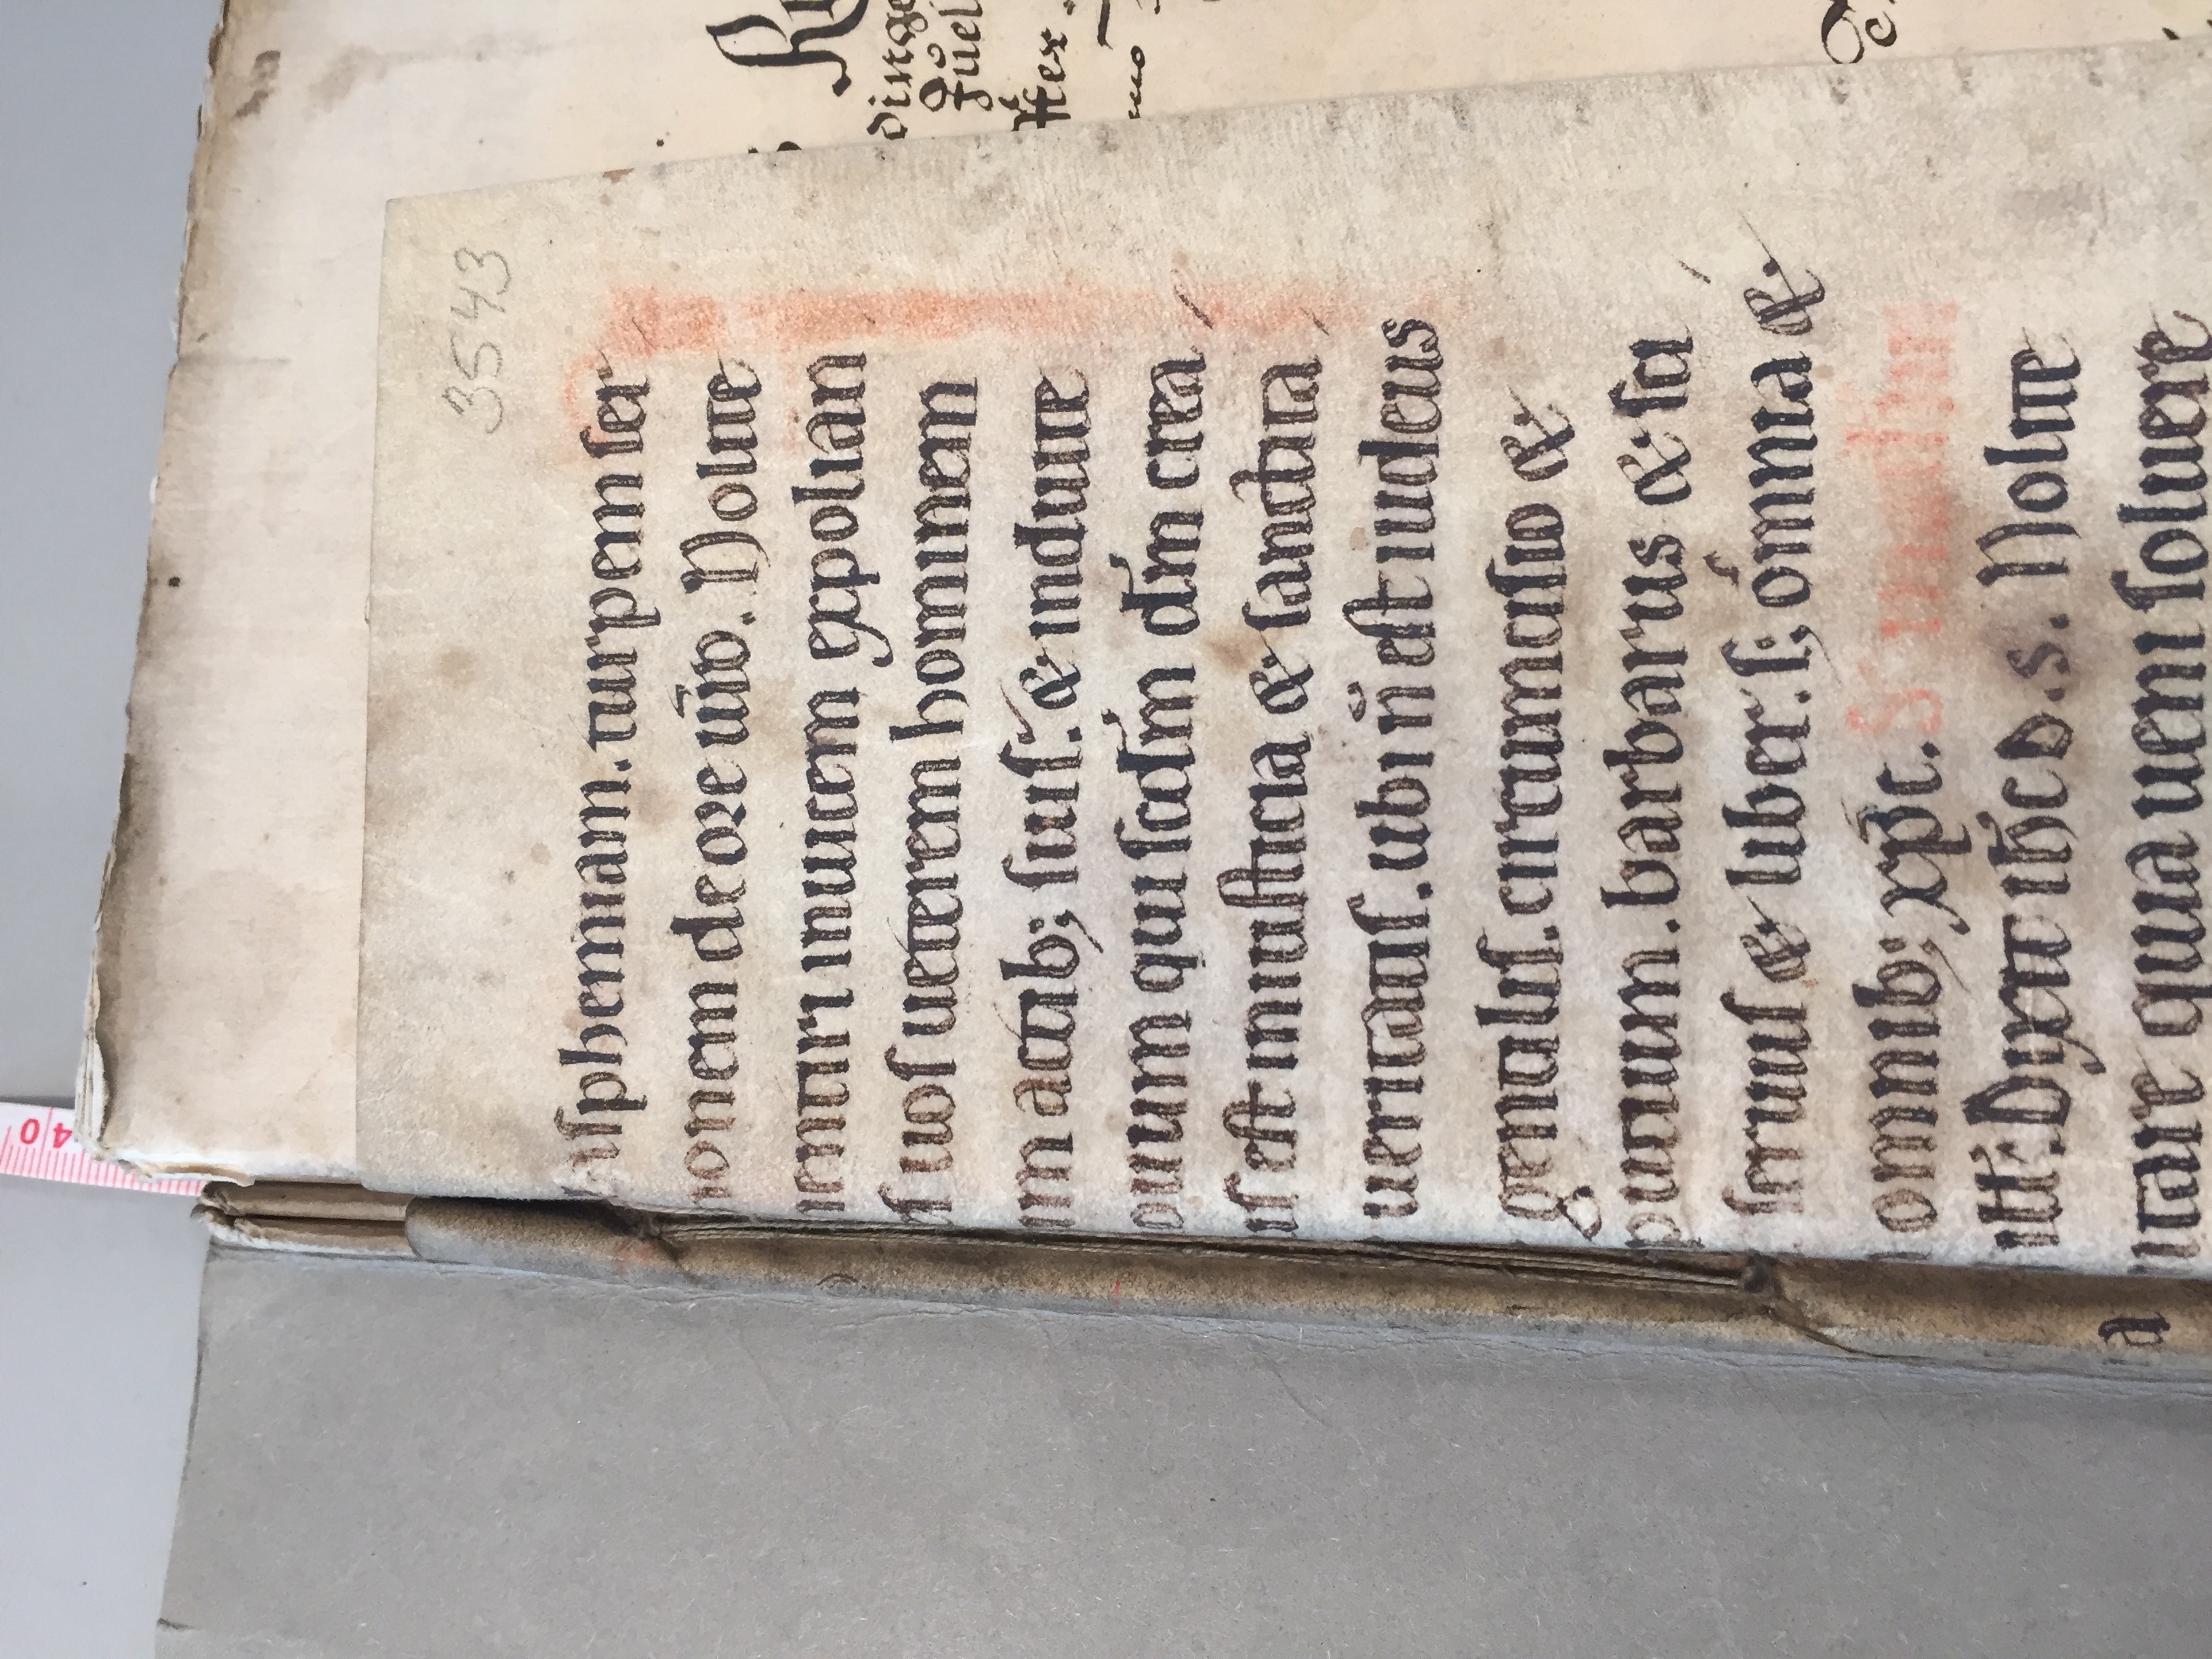 40
3543
asphemiam. turpem ser
onem de ore ur̄o. Nolite
entiri inuicem expolian
s uos ueterem hominem
um actib; suis. & induite
ouum qui scdm̄ dm̄ crea
us est iniusticia & sanctita
ueritatis. ubi n̄ est iudeus
gentilis. circumcisio &
putium. barbarus & sci
seruus & liber. s; omnia &
omnib; xp̄c.
Dixit ih̄c d. s. Nolite
a
utare quia ueni soluere
dinge